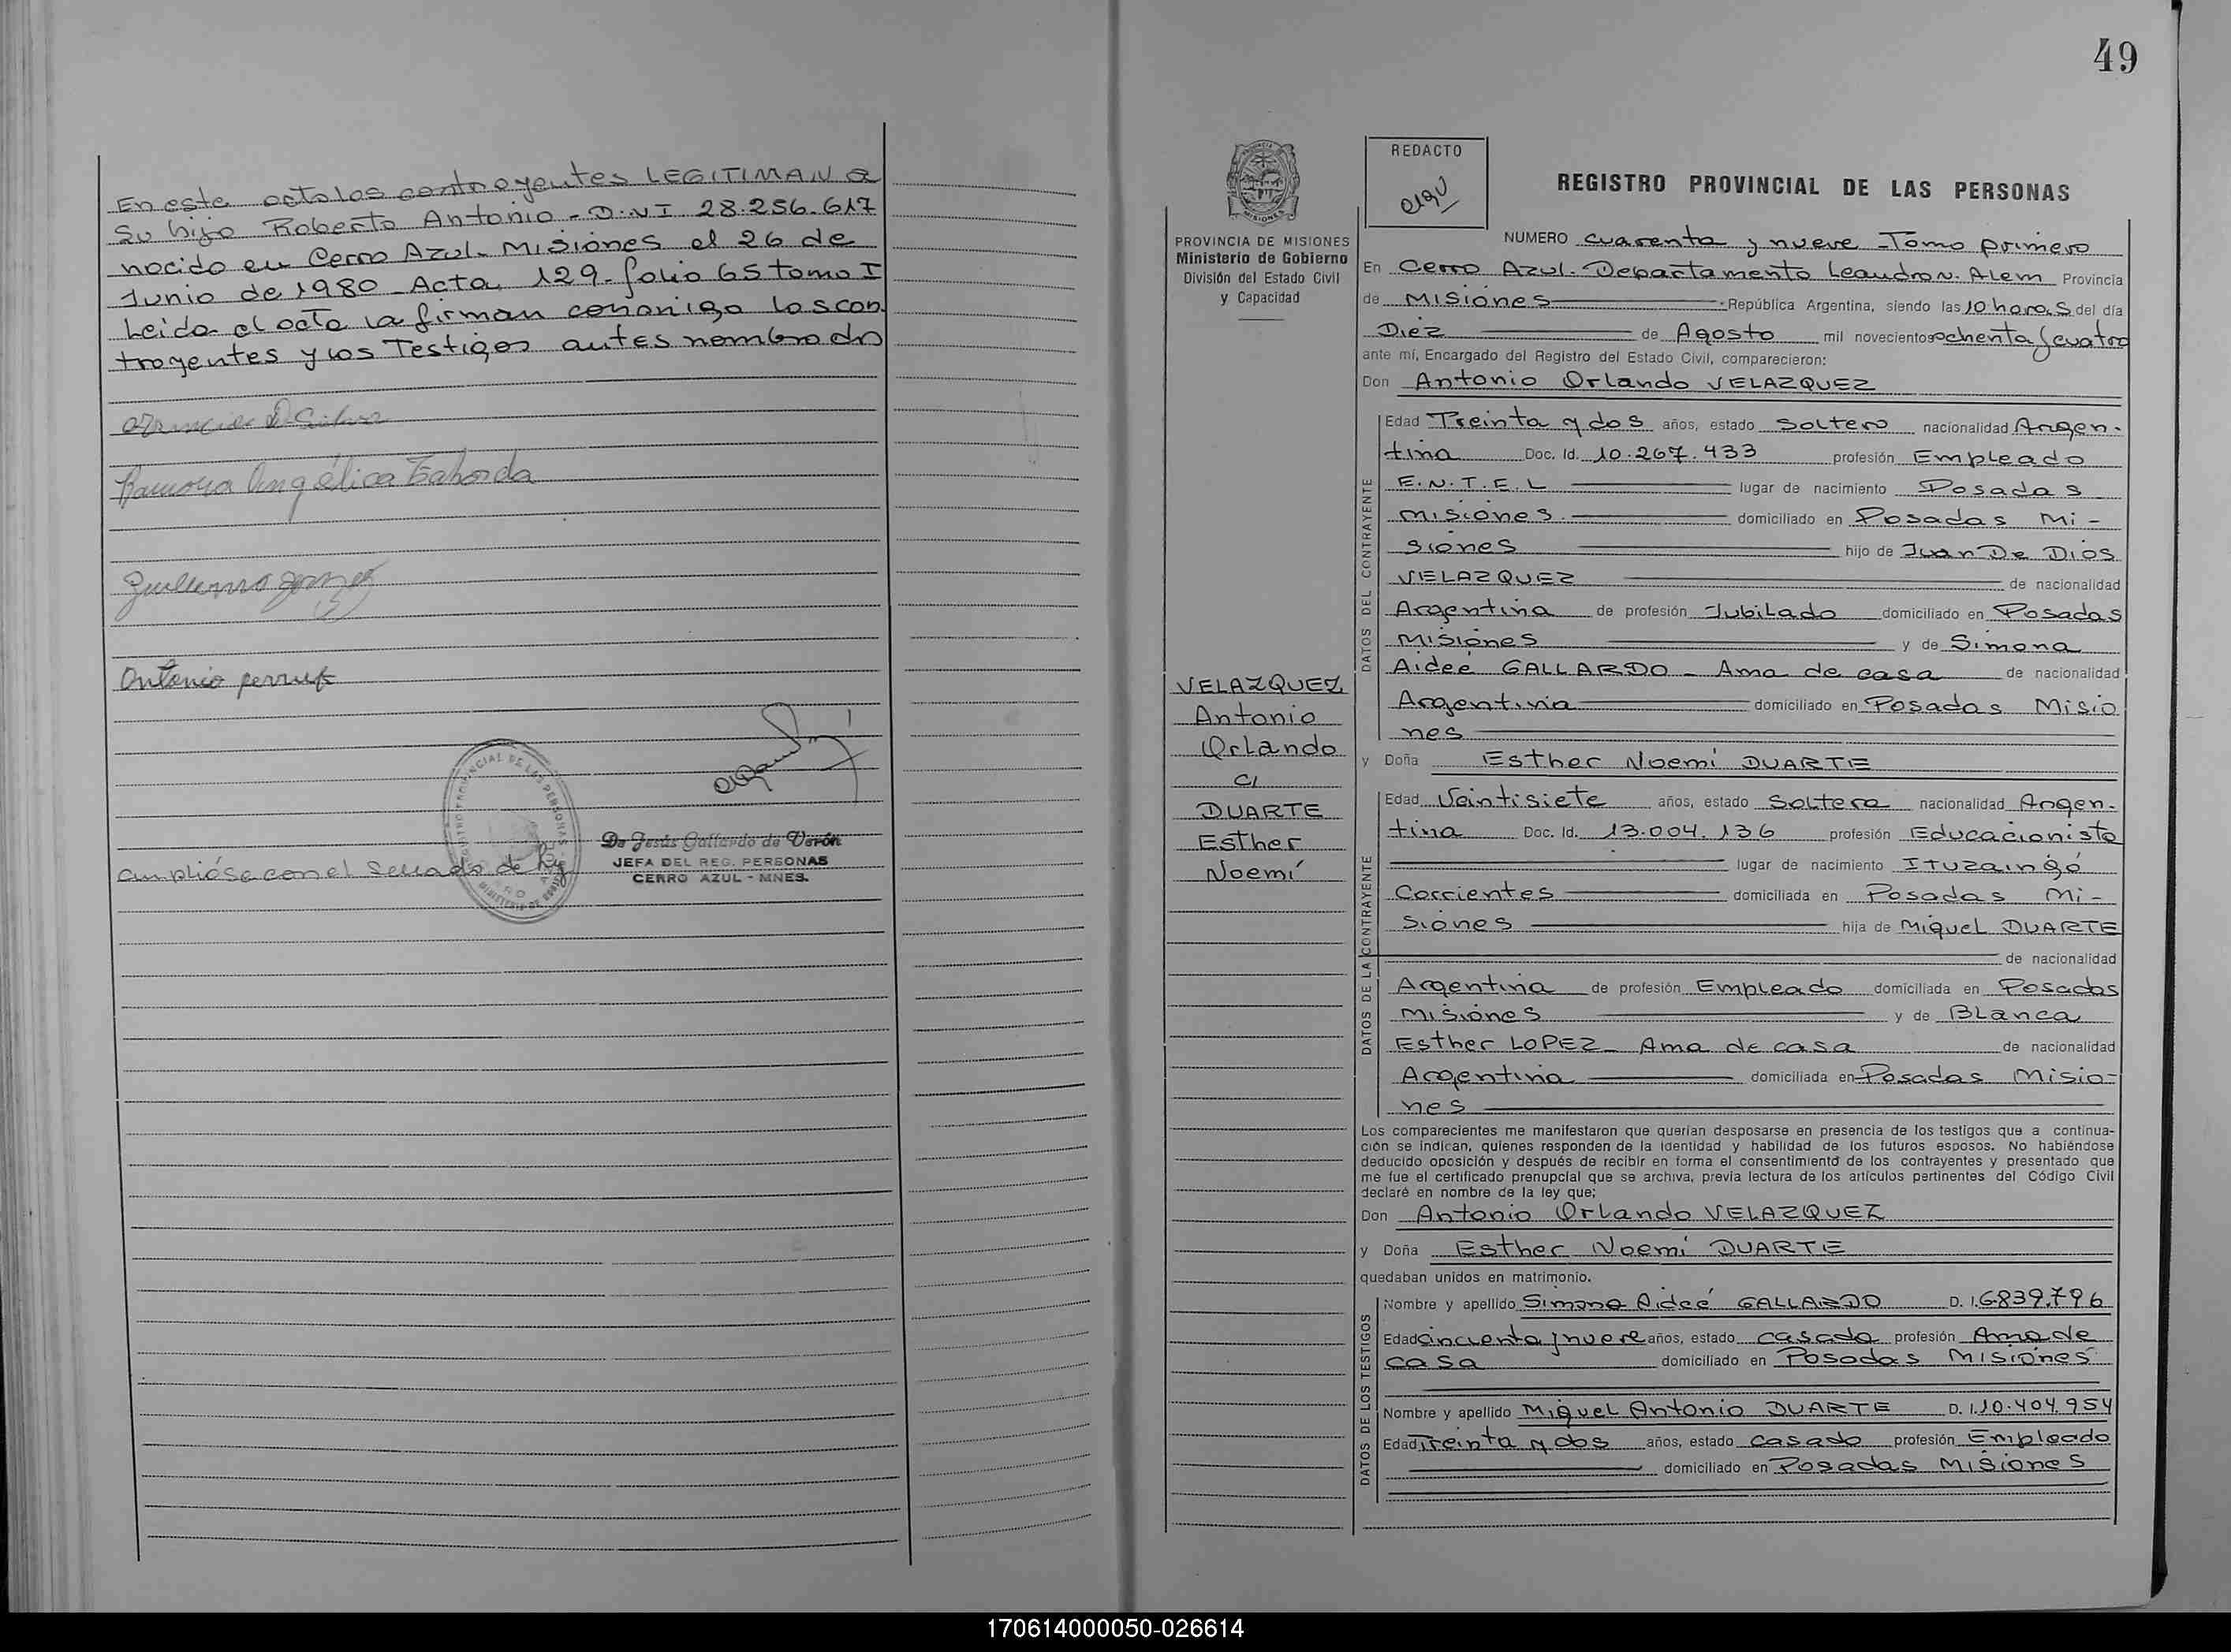 En este acto los contrayentes LEGITIMAN a
Su hijo Roberto Antonio - D.N.I 28.256.617
nacido en Cerro Azul - Misiones el 26 de
Junio de 1980 - Acta 129 - folio 65 tomo I
Leida el acta la firman conmigo los con
trayentes y los Testigos antes nombrado
Ramona Angélica Taborda
Antonio
De Jesús Gallardo de Verón
JEFA DEL REG. PERSONAS
CERRO AZUL - MNES.
ampliáse con el Sellado de ley
49
REDACTO
REGISTRO PROVINCIAL DE LAS PERSONAS
PROVINCIA DE MISIONES
Ministerio de Gobierno
División del Estado Civil
y Capacidad
VELAZQUEZ
Antonio
Orlando
c/
DUARTE
Esther
Noemí
NUMERO cuarenta y nueve - Tomo primero
En Cerro Azul. Departamento Leandro N. Alem Provincia
de Misiones República Argentina, siendo las 10 horas del día
Diez de Agosto mil novecientos ochenta y cuatro
ante mí, Encargado del Registro del Estado Civil, comparecieron:
Don Antonio Orlando VELAZQUEZ
DATOS DEL CONTRAYENTE
Edad Treinta y dos años, estado Soltero nacionalidad Argen-
tina Doc. Id. 10.267.433 profesión Empleado
E.N.T.E.L lugar de nacimiento Posadas
Misiones domiciliado en Posadas Mi-
siones hijo de Juan De Dios
VELAZQUEZ de nacionalidad
Argentina de profesión Jubilado domiciliado en Posadas
Misiones y de Simona
Aideé GALLARDO - Ama de casa de nacionalidad
Argentina domiciliado en Posadas Misio
nes
y Doña Esther Noemí DUARTE
DATOS DE LA CONTRAYENTE
Edad Veintisiete años, estado Soltera nacionalidad Argen-
tina Doc. Id. 13.004.136 profesión Educacionista
lugar de nacimiento Ituzaingó
Corrientes domiciliada en Posadas Mi-
siones hija de Miguel DUARTE
de nacionalidad
Argentina de profesión Empleado domiciliada en Posadas
Misiones y de Blanca
Esther LOPEZ - Ama de casa de nacionalidad
Argentina domiciliada en Posadas Misio-
nes
Los comparecientes me manifestaron que querían desposarse en presencia de los testigos que a continua-
ción se indican, quienes responden de la identidad y habilidad de los futuros esposos. No habiéndose
deducido oposición y después de recibir en forma el consentimiento de los contrayentes y presentado que
me fue el certificado prenupcial que se archiva, previa lectura de los artículos pertinentes del Código Civil
declaré en nombre de la ley que;
Don Antonio Orlando VELAZQUEZ
y Doña Esther Noemí DUARTE
quedaban unidos en matrimonio.
DATOS DE LOS TESTIGOS
Nombre y apellido Simona Aideé GALLARDO D. I. 6839.796
Edad cincuenta y nueve años, estado casada profesión Ama de
casa domiciliado en Posadas Misiones
Nombre y apellido Miguel Antonio DUARTE D. I. 10.404.954
Edad Treinta y dos años, estado casado profesión Empleado
domiciliado en Posadas Misiones
170614000050-026614